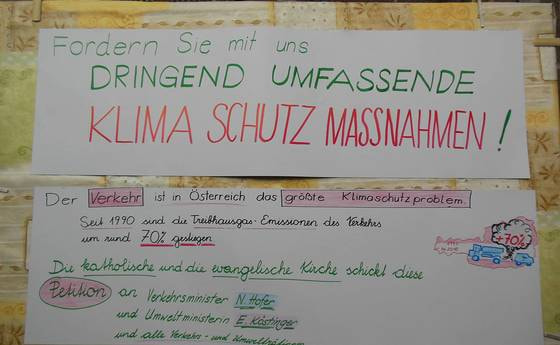 Fordern Sie mit uns
DRINGEND UMFASSENDE
KLIMA SCHUTZ MASSNAHMEN!
Der Verkehr ist in Österreich das größte Klimaschutzproblem.
Seit 1990 sind die Treibhausgas-Emissionen des Verkehrs
um rund 70% gestiegen
+70%
Die katholische und die evangelische Kirche schickt diese
Petition an Verkehrsminister N. Hofer
und Umweltministerin E. Köstinger
und alle Verkehrs- und